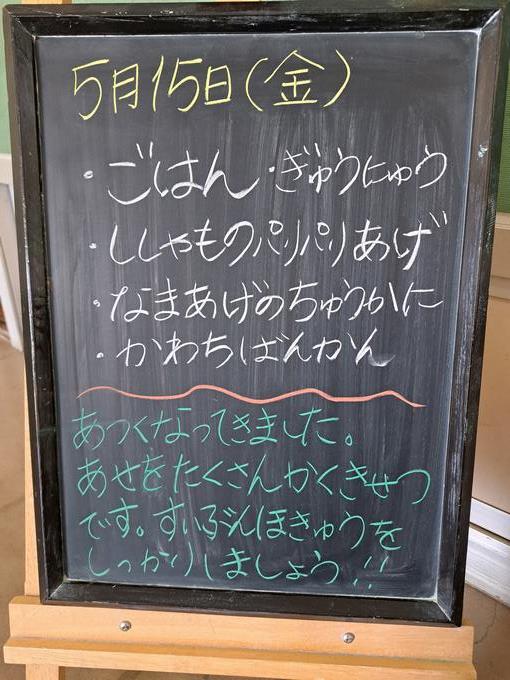 5月15日(金)
・ごはん・ぎゅうにゅう
・ししゃものパリパリあげ
・なまあげのちゅうかに
・かわちばんかん
あつくなってきました。
あせをたくさんかくきせつ
です。すいぶんほきゅうを
しっかりしましょう!!